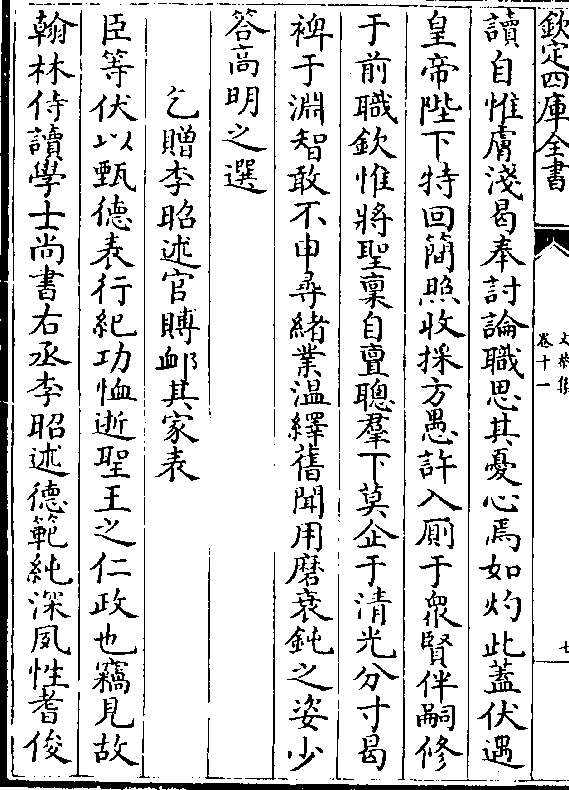 欽定四庫全書
文恭集
卷十一
七
讀自惟膚淺曷奉討論職思其憂心焉如灼此蓋伏遇
皇帝陛下特回簡照收採方愚許入廁于衆賢伴嗣修
于前職欽惟將聖稟自亶聰羣下莫企于清光分寸曷
裨于淵智敢不申尋緒業温繹舊聞用磨衰鈍之姿少
答高明之選
乞贈李昭述官賻䘏其家表
臣等伏以甄德表行紀功恤逝聖王之仁政也竊見故
翰林侍讀學士尚書右丞李昭述德範純深夙性耆俊